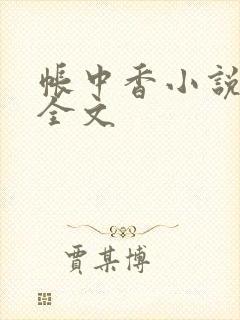 帳中香小說
全文
賈某博